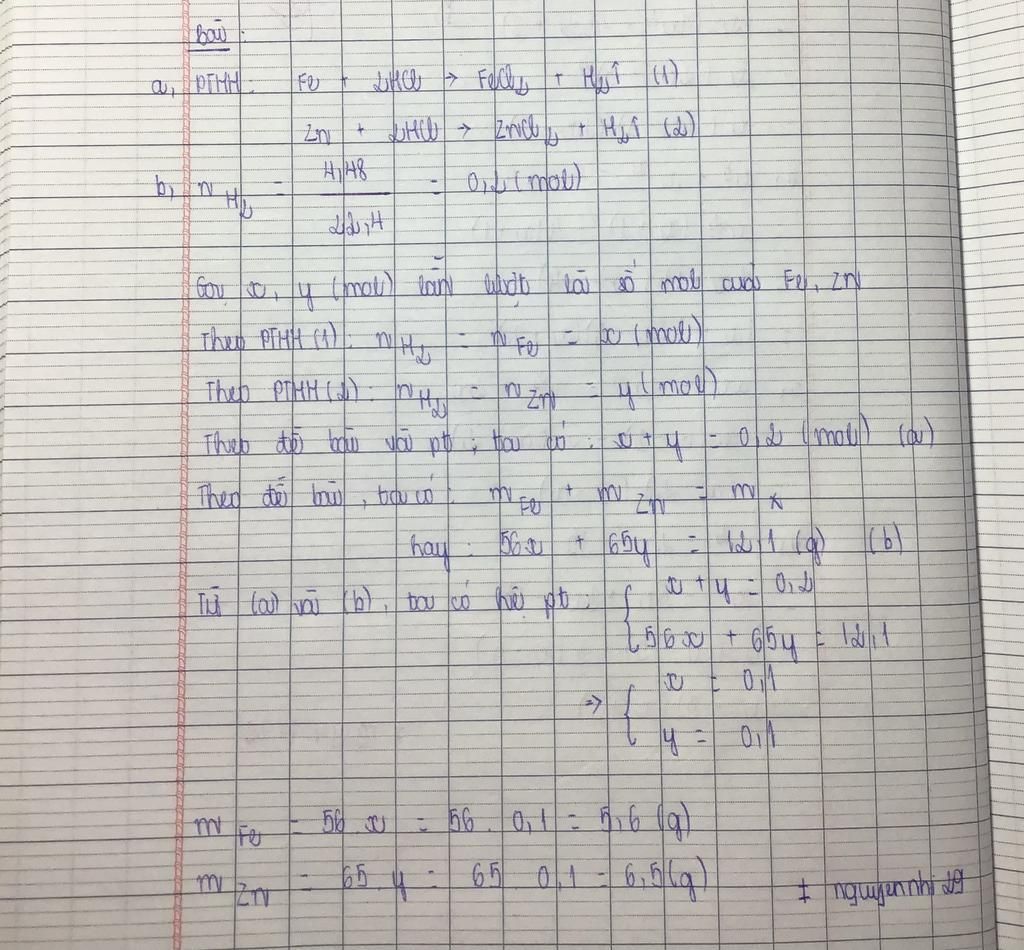 Bài:
a, PTHH: Fe + 2HCl → FeCl₂ + H₂↑ (1)
Zn + 2HCl → ZnCl₂ + H₂↑ (2)
b, n H₂ = 4,48 / 22,4 = 0,2 (mol)
Gọi x, y (mol) lần lượt là số mol của Fe, Zn
Theo PTHH (1): n H₂ = n Fe = x (mol)
Theo PTHH (2): n H₂ = n Zn = y (mol)
Theo đề bài và pt, ta có: x + y = 0,2 (mol) (a)
Theo đề bài, ta có: m Fe + m Zn = m X
hay: 56x + 65y = 12,1 (g) (b)
Từ (a) và (b), ta có hệ pt: { x + y = 0,2
56x + 65y = 12,1
=> { x = 0,1
y = 0,1
m Fe = 56.x = 56.0,1 = 5,6 (g)
m Zn = 65.y = 65.0,1 = 6,5 (g)
nguyennhi29